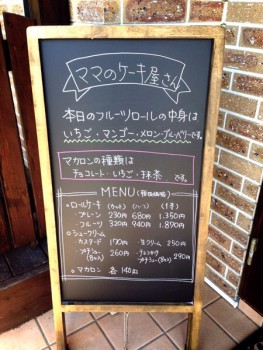 ママのケーキ屋さん
本日のフルーツロールの中身は
いちご・マンゴー・メロン・ブルーベリーです。
マカロンの種類は
チョコレート・いちご・抹茶 です。
MENU
・ロールケーキ (カット) (ハーフ) (1本)
プレーン 230円 680円 1,350円
フルーツ 320円 940円 1,890円
・シュークリーム
カスタード 170円 ・生クリーム 250円
プチシュー(8コ入) 260円 ・チョコがけプチシュー(8コ入) 290円
・マカロン 各 140円